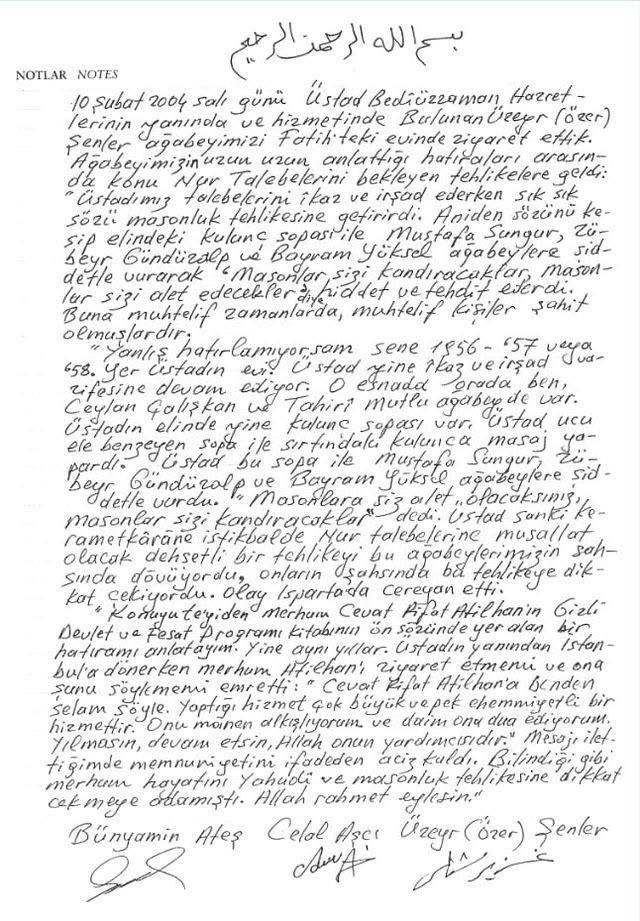 بسم الله الرحمن الرحيم
NOTLAR NOTES
10 Şubat 2004 salı günü Üstad Bediüzzaman Hazret-
lerinin yanında ve hizmetinde Bulunan Üzeyr (Özer)
Şenler ağabeyimizi Fatih'teki evinde ziyaret ettik.
Ağabeyimizin uzun uzun anlattığı hatıraları arasın-
da konu Nur Talebelerini bekleyen tehlikelere geldi:
"Üstadımız talebelerini ikaz ve irşad ederken sık sık
sözü masonluk tehlikesine getirirdi. Aniden sözünü ke-
sip elindeki kulunc sopası ile Mustafa Sungur, Zü-
beyr Gündüzalp ve Bayram Yüksel ağabeylere şid-
detle vurarak "Masonlar sizi kandıracaklar, mason-
lar sizi alet edecekler" diye hiddet ve tehdit ederdi.
Buna muhtelif zamanlarda, muhtelif kişiler şahit
olmuşlardır.
"Yanlış hatırlamıyorsam sene 1956 - '57 veya
'58. Yer Üstadın evi. Üstad yine ikaz ve irşad va-
zifesine devam ediyor. O esnada orada ben,
Ceylan Çalışkan ve Tahirî Mutlu ağabey de var.
Üstadın elinde yine kulunc sopası var. Üstad ucu
ele benzeyen sopa ile sırtındaki kulunca masaj ya-
pardı. Üstad bu sopa ile Mustafa Sungur, Zü-
beyr Gündüzalp ve Bayram Yüksel ağabeylere şid-
detle vurdu. "Masonlara siz alet olacaksınız,
masonlar sizi kandıracaklar" dedi. Üstad sanki ke-
rametkârâne istikbalde Nur talebelerine musallat
olacak dehşetli bir tehlikeyi bu ağabeylerimizin şah-
sında dövüyordu, onların şahsında bu tehlikeye dik-
kat çekiyordu. Olay Isparta'da cereyan etti.
"Konuyu teyiden merhum Cevat Rifat Atilhan'ın Gizli
Devlet ve Fesat Programı kitabının ön sözünde yer alan bir
hatıramı anlatayım. Yine aynı yıllar. Üstadın yanından İstan-
bul'a dönerken merhum Atilhan'ı ziyaret etmemi ve ona
şunu söylememi emretti: "Cevat Rifat Atilhan'a benden
selam söyle. Yaptığı hizmet çok büyük ve pek ehemmiyetli bir
hizmettir. Onu manen alkışlıyorum ve daim ona dua ediyorum.
Yılmasın, devam etsin, Allah onun yardımcısıdır." Mesajı ilet-
tiğimde memnuniyetini ifadeden aciz kaldı. Bilindiği gibi
merhum hayatını Yahudi ve masonluk tehlikesine dikkat
çekmeye adamıştı. Allah rahmet eylesin."
Bünyamin Ateş Celal Aşcı Üzeyr (Özer) Şenler